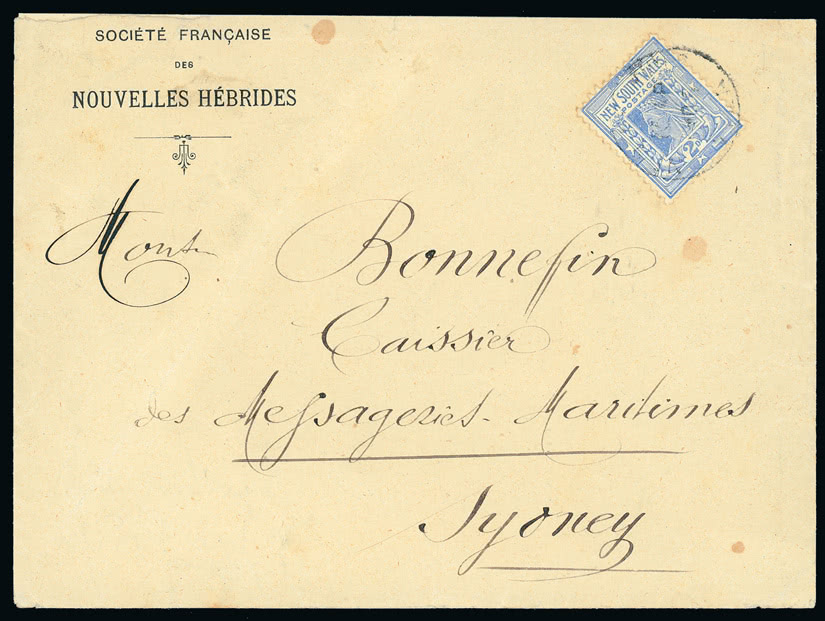 SOCIÉTÉ FRANÇAISE
DES
NOUVELLES HÉBRIDES
NEW SOUTH WALES
POSTAGE
2D
Bonnefin
Caissier
des Messageries Maritimes
Sydney